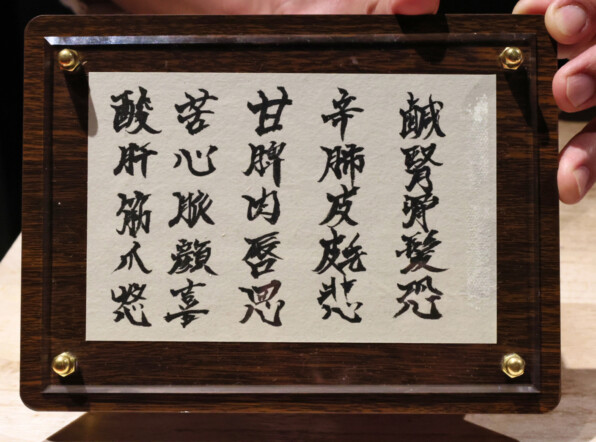 酸肝筋爪怒
苦心脈顔喜
甘脾肉唇思
辛肺皮悲
鹹腎骨髪恐